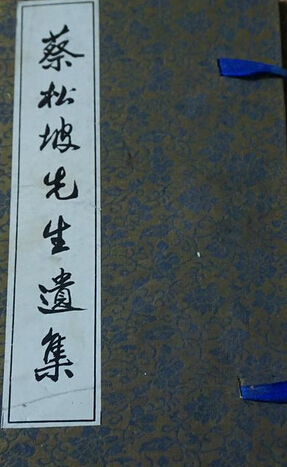 蔡松坡先生遺集